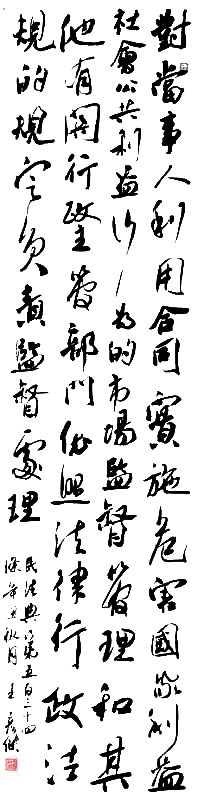 對當事人利用合同實施危害國家利益
社會公共利益行為的市場監督管理和其
他有關行政主管部門依照法律行政法
規的規定負責監督處理
民法典第五百三十四
條辛丑秋月王